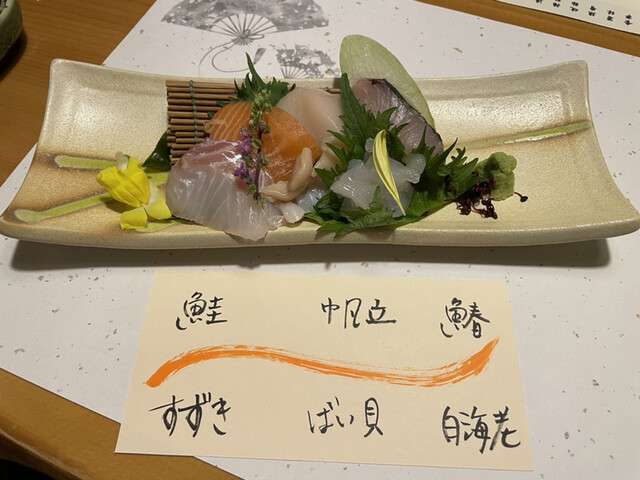 鮭 帆立 鰆
すずき ばい貝 白海老